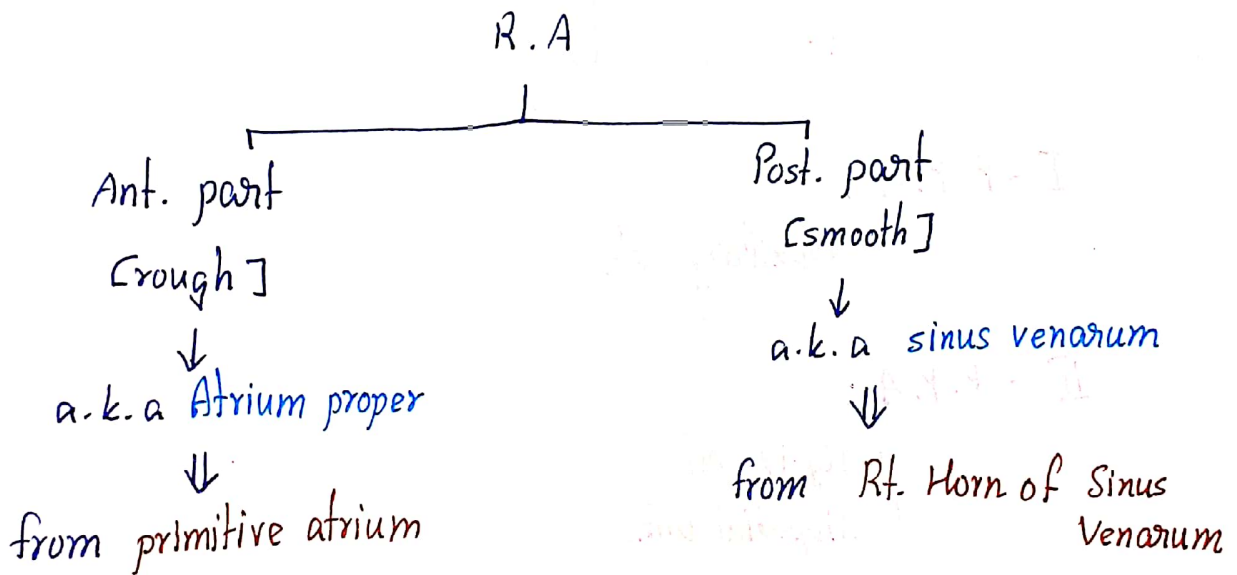 R.A
Ant. part
[rough]
a.k.a Atrium proper
from primitive atrium
Post. part
[smooth]
a.k.a sinus venarum
from Rt. Horn of Sinus
Venarum